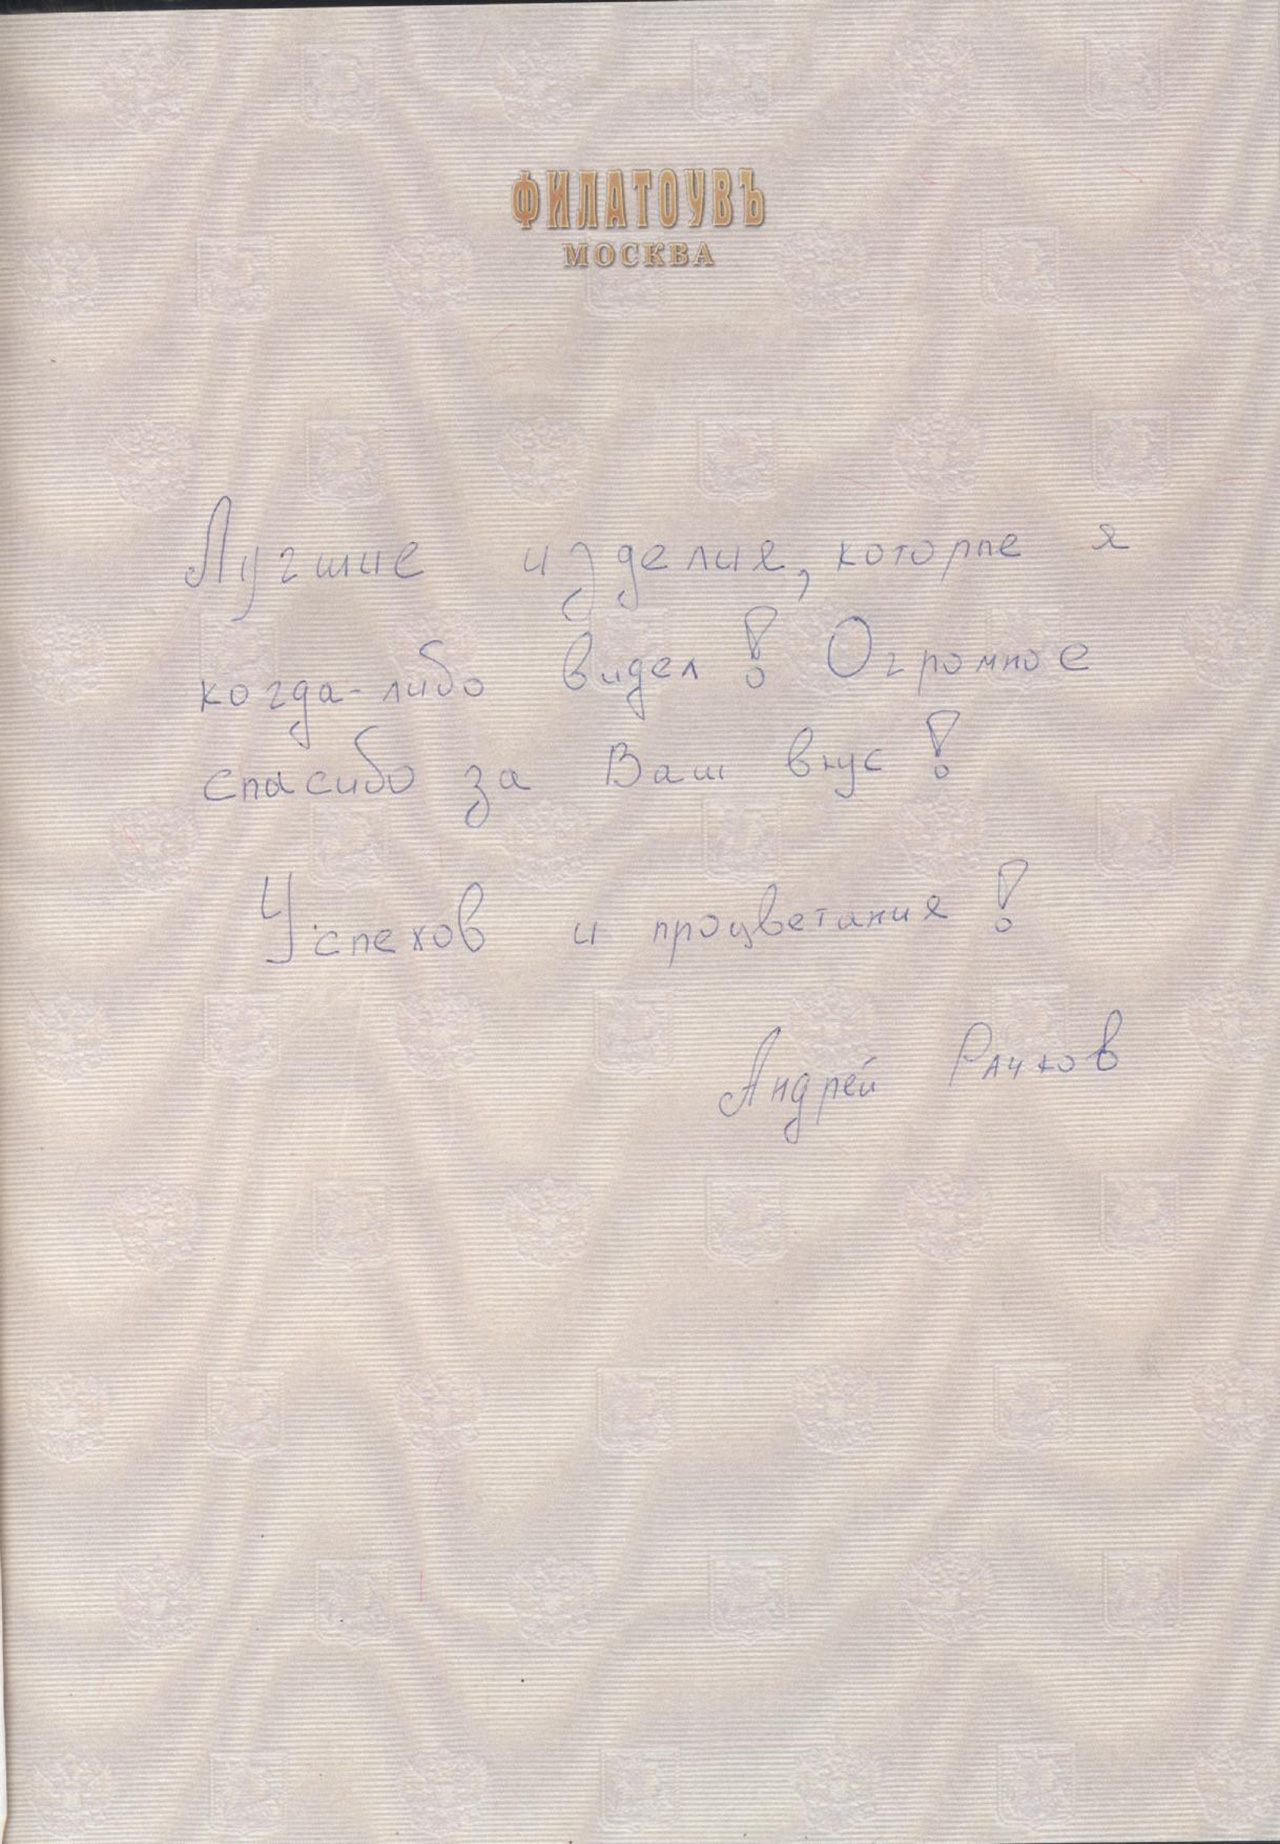 ФИЛАТОУВЪ
МОСКВА
Лучшие изделия, которые я
когда-либо видел! Огромное
спасибо за Ваш вкус!
Успехов и процветания!
Андрей Рачков